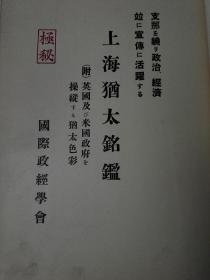 支那を繞り政治、經濟
竝に宣傳に活躍する
上海猶太銘鑑
(附)英國及び米國政府を
操縱する猶太色彩
國際政經學會
極秘